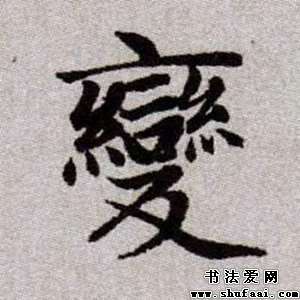 變
书法爱网
www.shufaai.com